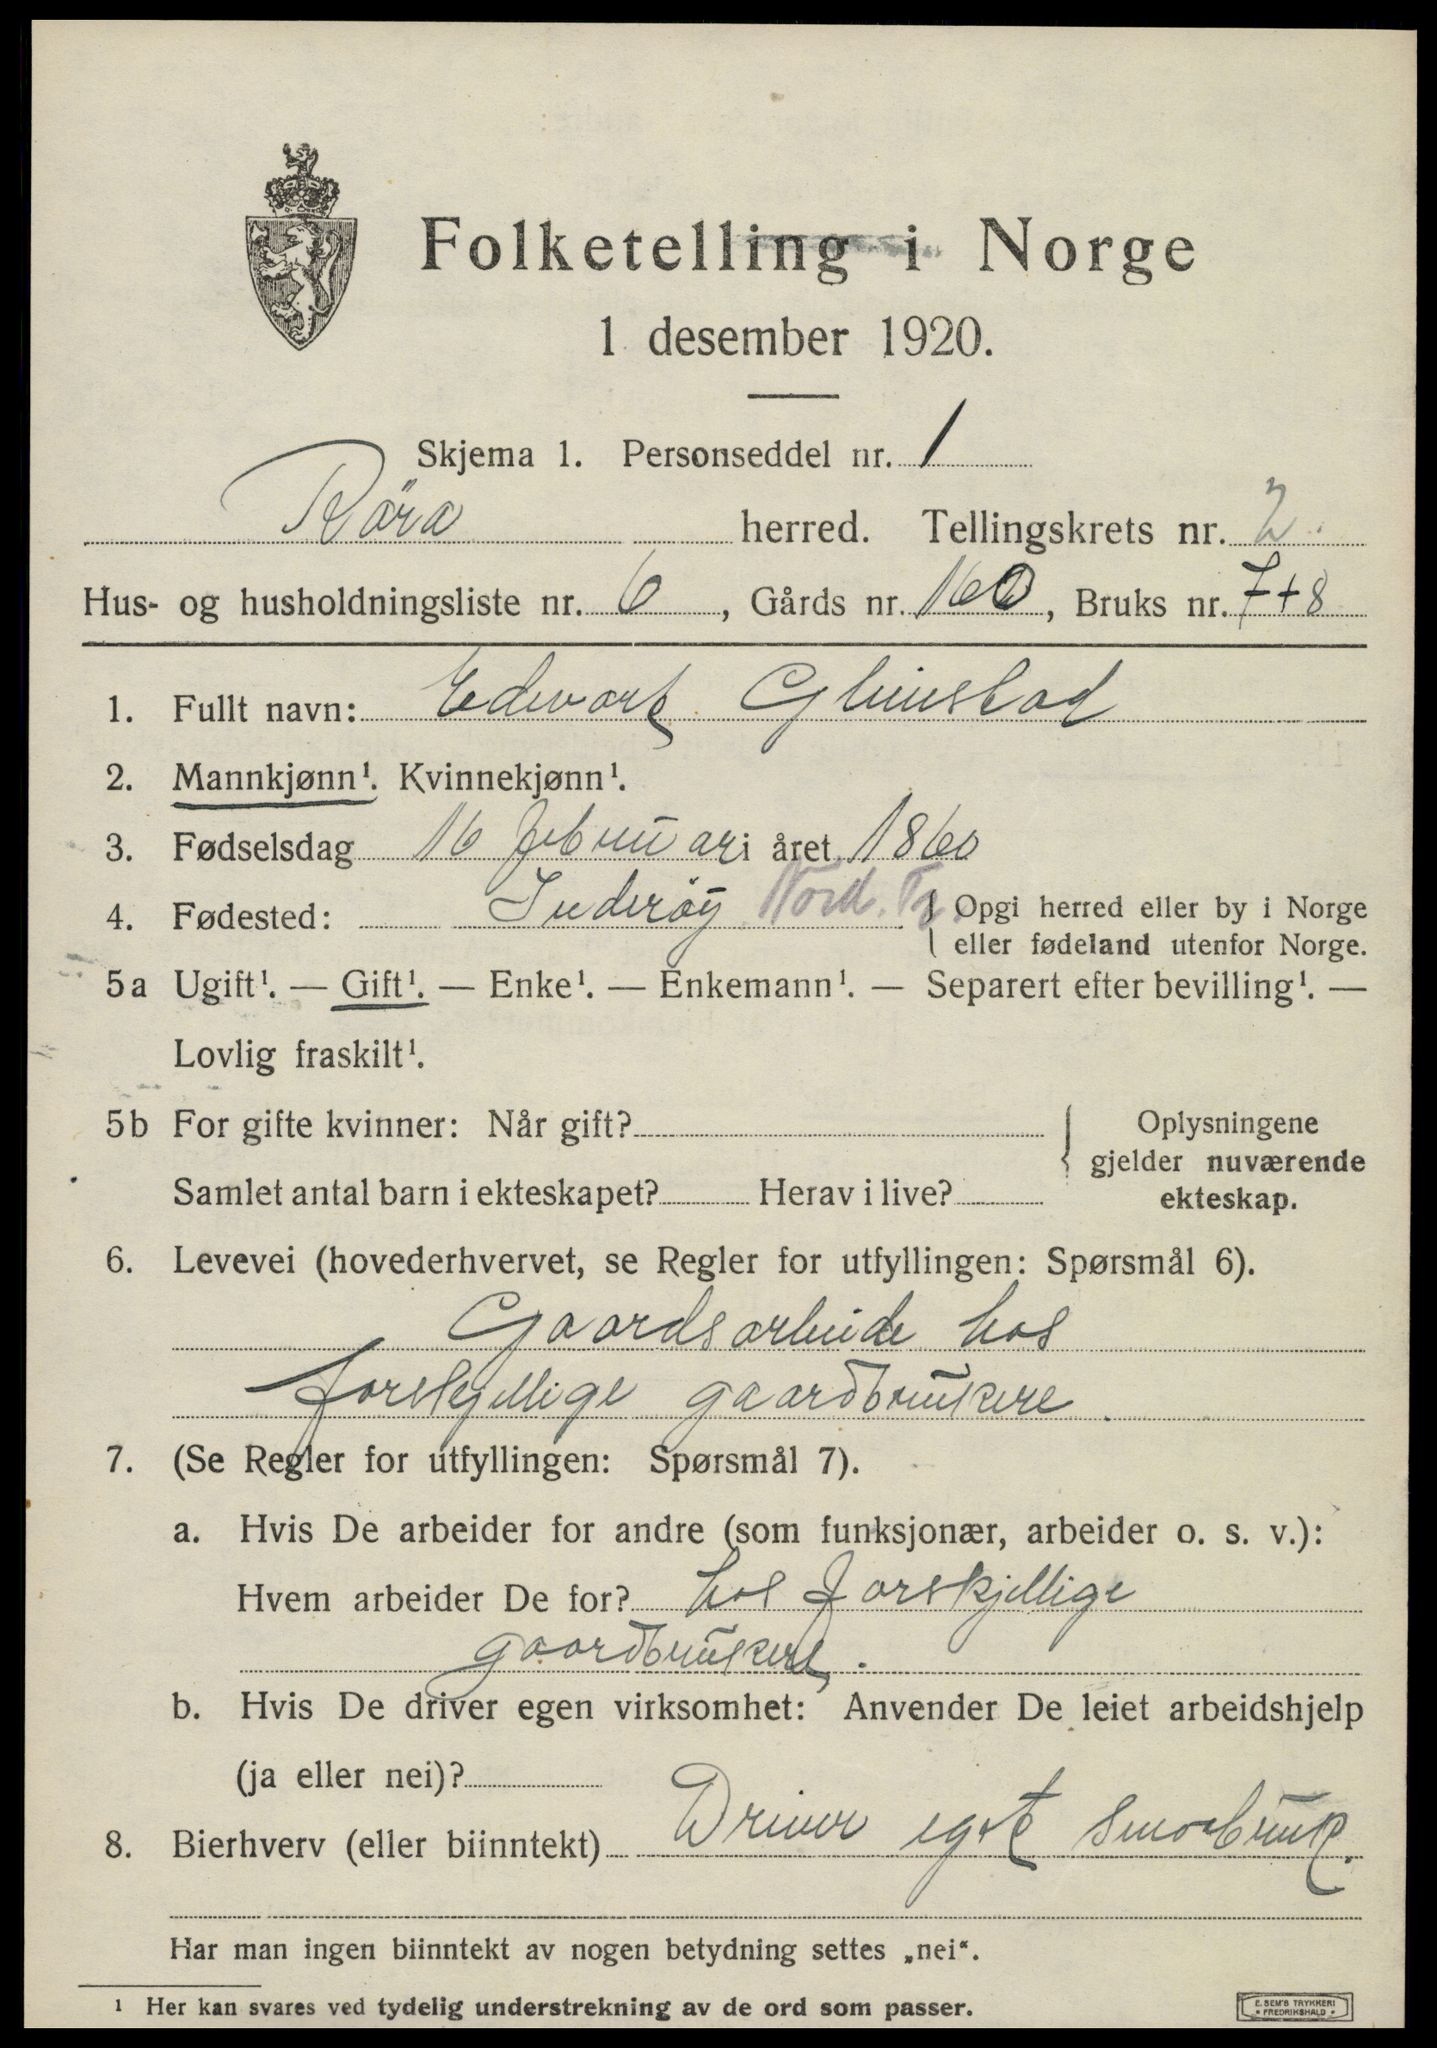 Folketelling i Norge
1 desember 1920.
Skjema 1. Personseddel nr. 1
Röra herred. Tellingskrets nr. 2.
Hus- og husholdningsliste nr. 6, Gårds nr. 160, Bruks nr. 7+8
1. Fullt navn: Edvart Glimstad
2. Mannkjønn¹. Kvinnekjønn¹.
3. Fødselsdag 16 februar i året 1860
4. Fødested: Inderöy Nord. Tr. { Opgi herred eller by i Norge
eller fødeland utenfor Norge.
5a Ugift¹. — Gift¹. — Enke¹. — Enkemann¹. — Separert efter bevilling¹. —
Lovlig fraskilt¹.
5b For gifte kvinner: Når gift? { Oplysningene
gjelder nuværende
Samlet antal barn i ekteskapet? Herav i live? ekteskap.
6. Levevei (hovederhvervet, se Regler for utfyllingen: Spørsmål 6).
Gaardsarbeide hos
forskjellige gaardbrukere.
7. (Se Regler for utfyllingen: Spørsmål 7).
a. Hvis De arbeider for andre (som funksjonær, arbeider o. s. v.):
Hvem arbeider De for? hos forskjellige
gaardbrukere.
b. Hvis De driver egen virksomhet: Anvender De leiet arbeidshjelp
(ja eller nei)?
8. Bierhverv (eller biinntekt) Driver eget smaabruk.
Har man ingen biinntekt av nogen betydning settes „nei“.
¹ Her kan svares ved tydelig understrekning av de ord som passer.
E. SEM'S TRYKKERI
• FREDRIKSHALD •